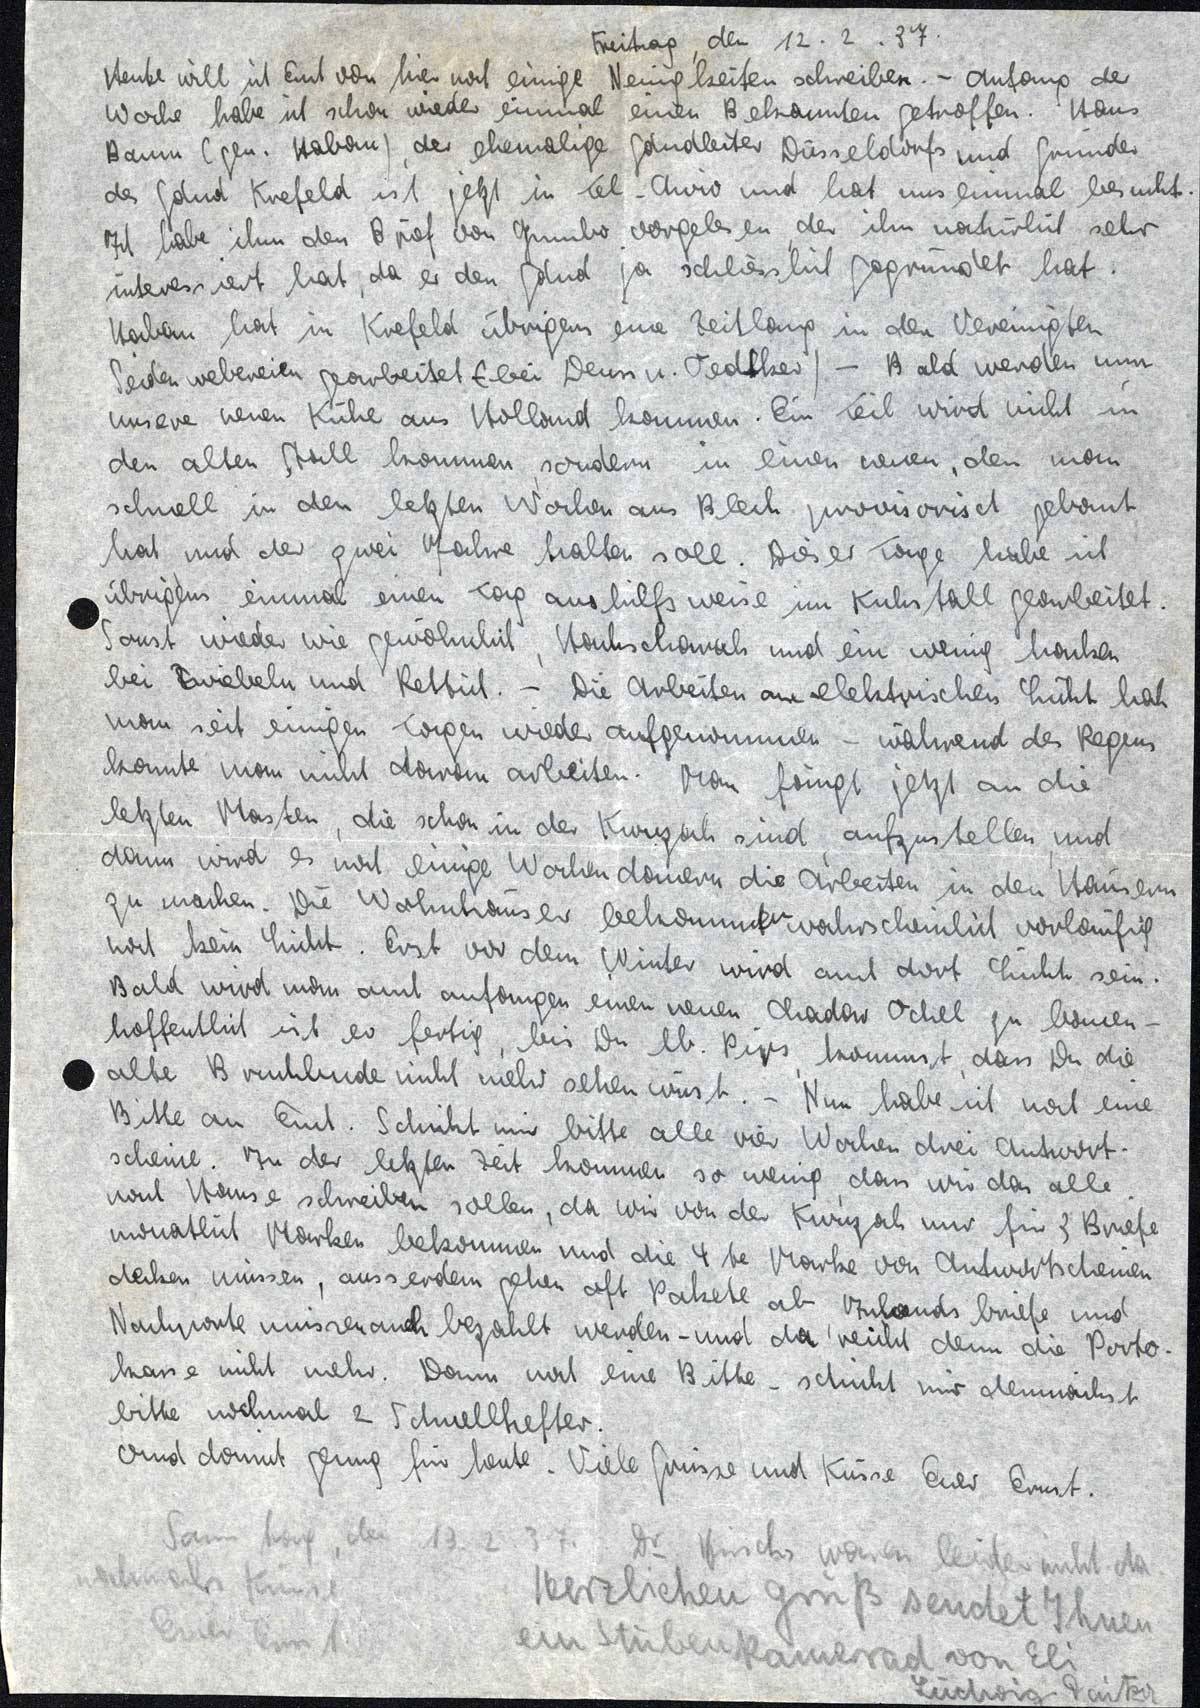 Freitag, den 12. 2. 37.
Heute will ich Euch von hier noch einige Neuigkeiten schreiben. - Anfang der
Woche habe ich schon wieder einmal einen Bekannten getroffen. Hans
Baum (gen. Habam), der ehemalige Gdudleiter Düsseldorfs und Gründer
des Gdud Krefeld ist jetzt in Tel-Awiw und hat uns einmal besucht.
Ich habe ihm den Brief von Gumbo vorgelesen, der ihn natürlich sehr
interessiert hat, da er den Gdud ja schliesslich gegründet hat.
Habam hat in Krefeld übrigens eine Zeitlang in den Vereinigten
Seidenwebereien gearbeitet (bei Deuss u. Oedtker) - Bald werden nun
unsere neuen Kühe aus Holland kommen. Ein Teil wird nicht in
den alten Stall kommen, sondern in einen neuen, den man
schnell in den letzten Wochen aus Blech provisorisch gebaut
hat und der zwei Jahre halten soll. Dieser Tage habe ich
übrigens einmal einen Tag aushilfsweise im Kuhstall gearbeitet.
Sonst wieder wie gewöhnlich, Hachscharah und ein wenig hacken
bei Zwiebeln und Rettich. - Die Arbeiten am elektrischen Licht hat
man seit einigen Tagen wieder aufgenommen - während des Regens
konnte man nicht daran arbeiten. Man fängt jetzt an die
letzten Masten, die schon in der Kwuzah sind, aufzustellen, und
dann wird es noch einige Wochen dauern die Arbeiten in den Häusern
zu machen. Die Wohnhäuser bekommen wahrscheinlich vorläufig
noch kein Licht. Erst vor dem Winter wird auch dort Licht sein.
Bald wird man auch anfangen einen neuen Chadar Ochel zu bauen -
hoffentlich ist er fertig, bis Du lb. Pips, kommst, dass Du die
alte Bruchbude nicht mehr sehen wirst. - Nun habe ich noch eine
Bitte an Euch. Schickt mir bitte alle vier Wochen drei Antwort-
scheine. In der letzten Zeit kommen so wenig, dass wir das alle
nach Hause schreiben sollen, da wir von der Kwuzah nur für 3 Briefe
monatlich Marken bekommen und die 4te Marke von Antwortscheinen
decken müssen, ausserdem gehen oft Pakete ab Inlandsbriefe und
Nachporte müssen auch bezahlt werden - und da reicht denn die Porto-
kasse nicht mehr. Dann noch eine Bitte - schickt mir demnächst
bitte nochmal 2 Schnellhefter.
Und damit genug für heute. Viele Grüsse und Küsse Euer Ernst.
Samstag, den 13. 2. 37. Dr Hirschs waren leider nicht da.
nochmals Küsse
Euer Ernst.
Herzlichen Gruß sendet Ihnen
ein Stubenkamerad von Eli
Ludwig